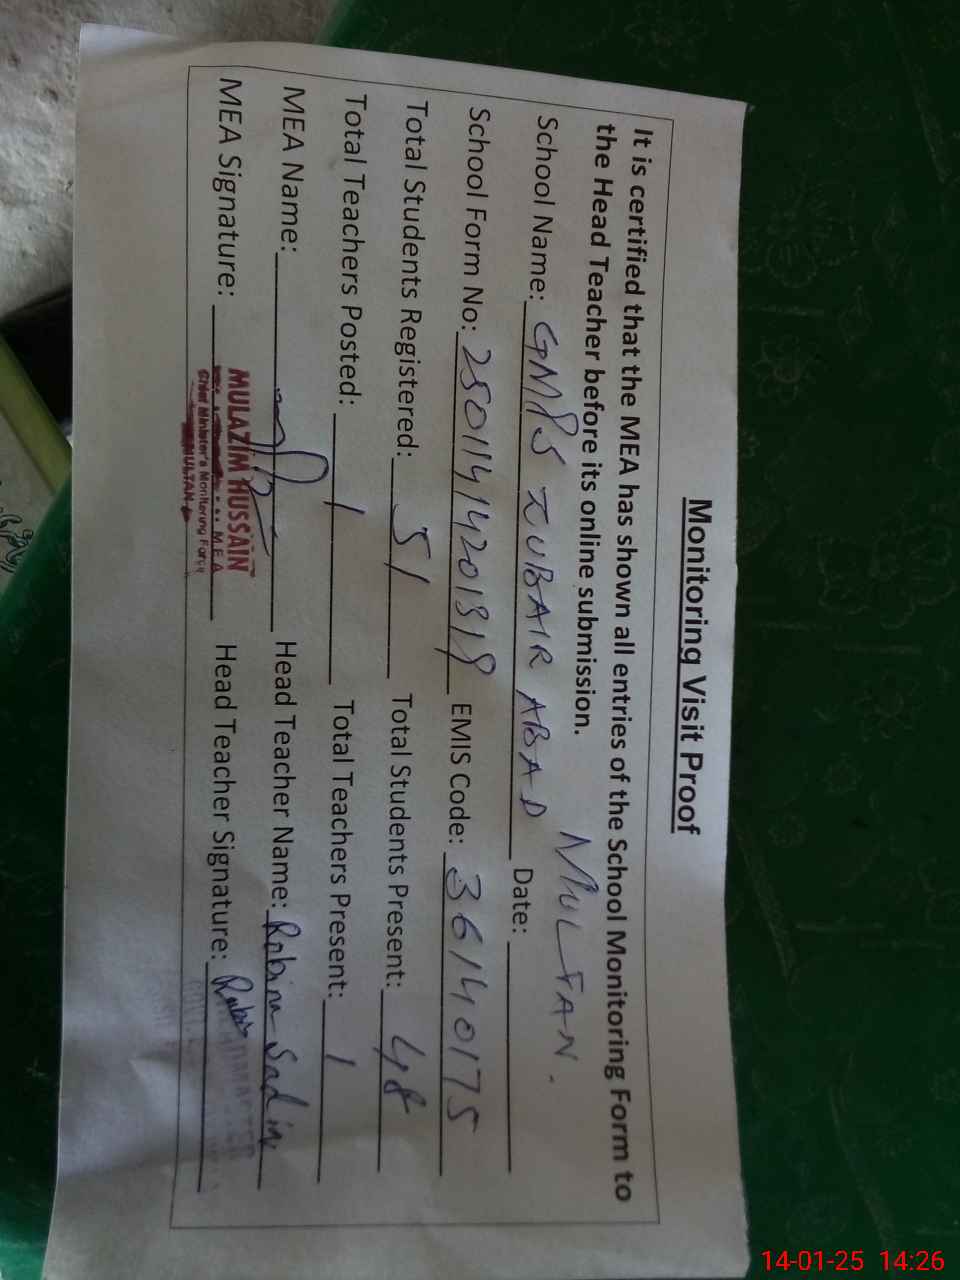 Monitoring Visit Proof
It is certified that the MEA has shown all entries of the School Monitoring Form to
the Head Teacher before its online submission.
MULTAN.
School Name: GMPS ZUBAIR ABAD Date:
School Form No: 25011414201318 EMIS Code: 36140175
Total Students Registered: 51 Total Students Present: 48
Total Teachers Posted: 1 Total Teachers Present: 1
MEA Name: Head Teacher Name: Robina
MEA Signature: Head Teacher Signature:
MULAZIM HUSSAIN
M.E.A
Chief Minister's Monitoring Force
MULTAN
14-01-25 14:26